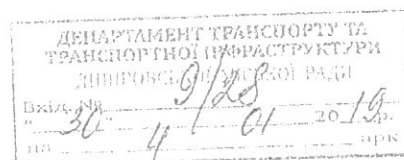 ДЕПАРТАМЕНТ ТРАНСПОРТУ ТА
ТРАНСПОРТНОЇ ІНФРАСТРУКТУРИ
ДНІПРОВСЬКОЇ МІСЬКОЇ РАДИ
Вхід. № 9/28
"30" 01 2019р.
на 4 арк